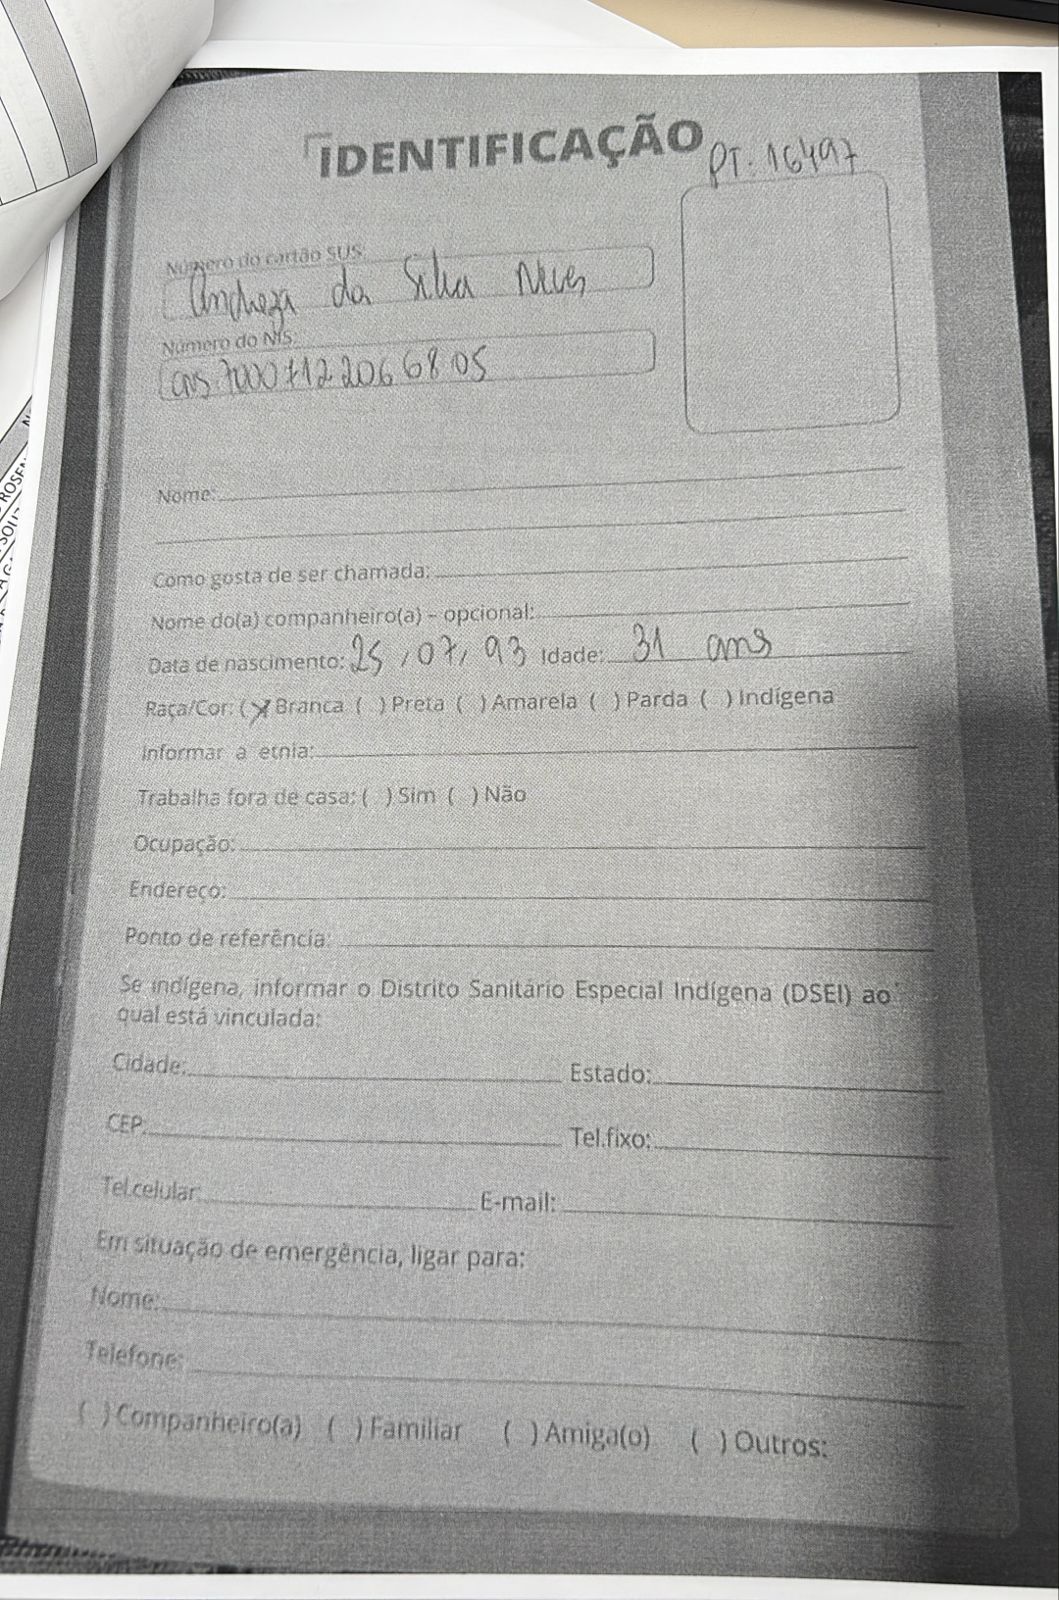 IDENTIFICAÇÃO
PT: 16497
Número do cartão SUS:
da Silva Neves
Número do NIS:
cns 70007122066805
Nome:
Como gosta de ser chamada:
Nome do(a) companheiro(a) – opcional:
Data de nascimento: 25/07/93 Idade: 31 anos
Raça/Cor: (X) Branca ( ) Preta ( ) Amarela ( ) Parda ( ) Indígena
Informar a etnia:
Trabalha fora de casa: ( ) Sim ( ) Não
Ocupação:
Endereço:
Ponto de referência:
Se indígena, informar o Distrito Sanitário Especial Indígena (DSEI) ao
qual está vinculada:
Cidade: Estado:
CEP: Tel.fixo:
Tel.celular: E-mail:
Em situação de emergência, ligar para:
Nome:
Telefone:
( ) Companheiro(a) ( ) Familiar ( ) Amiga(o) ( ) Outros: